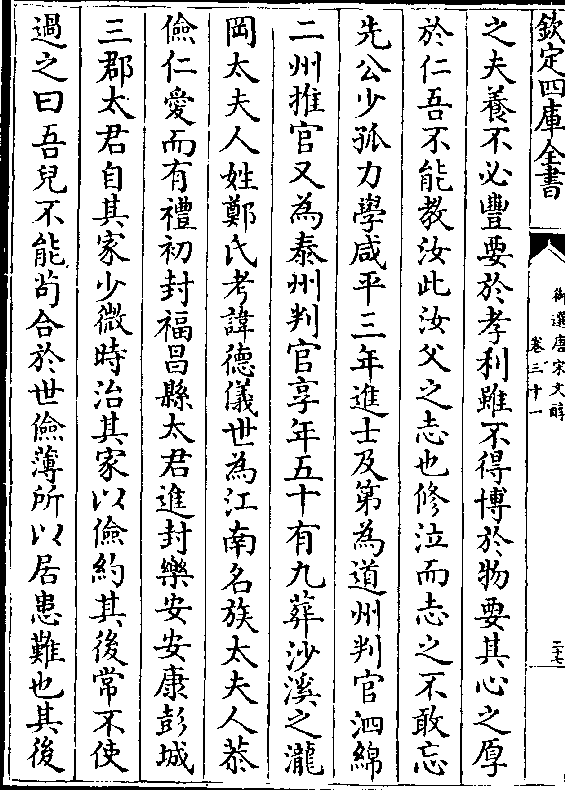 欽定四庫全書
御選唐宋文醇
卷三十一
二十七
之夫養不必豐要於孝利雖不得博於物要其心之厚
於仁吾不能教汝此汝父之志也修泣而志之不敢忘
先公少孤力學咸平三年進士及第為道州判官泗綿
二州推官又為泰州判官享年五十有九葬沙溪之瀧
岡太夫人姓鄭氏考諱德儀世為江南名族太夫人恭
儉仁愛而有禮初封福昌縣太君進封樂安安康彭城
三郡太君自其家少微時治其家以儉約其後常不使
過之曰吾兒不能茍合於世儉薄所以居患難也其後